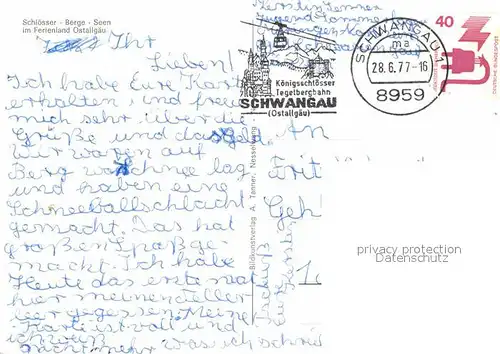 Schlösser - Berge - Seen
im Ferienland Ostallgäu
Ihr
Lieben!
Ich habe Eure Karte
erhalten, und freue
mich sehr über die
Grüße und das Geld.
Wir waren auf
Berg wo Schnee lag
und haben eine
Schneeballschlacht
gemacht. Das hat
großen Spaß ge-
macht. Ich habe
Heute das erste mal
hier meinen Teller
leer gegessen. Meine
Karte ist voll und
nicht mehr was ich schrei
Bildkunstverlag A. Tanner, Nesselwang
Königsschlösser
Tegelbergbahn
SCHWANGAU
(Ostallgäu)
SCHWANGAU 1
ma
28.6.77-16
8959
40
DEUTSCHE BUNDESPOST
An
Geh
privacy protection
Datenschutz